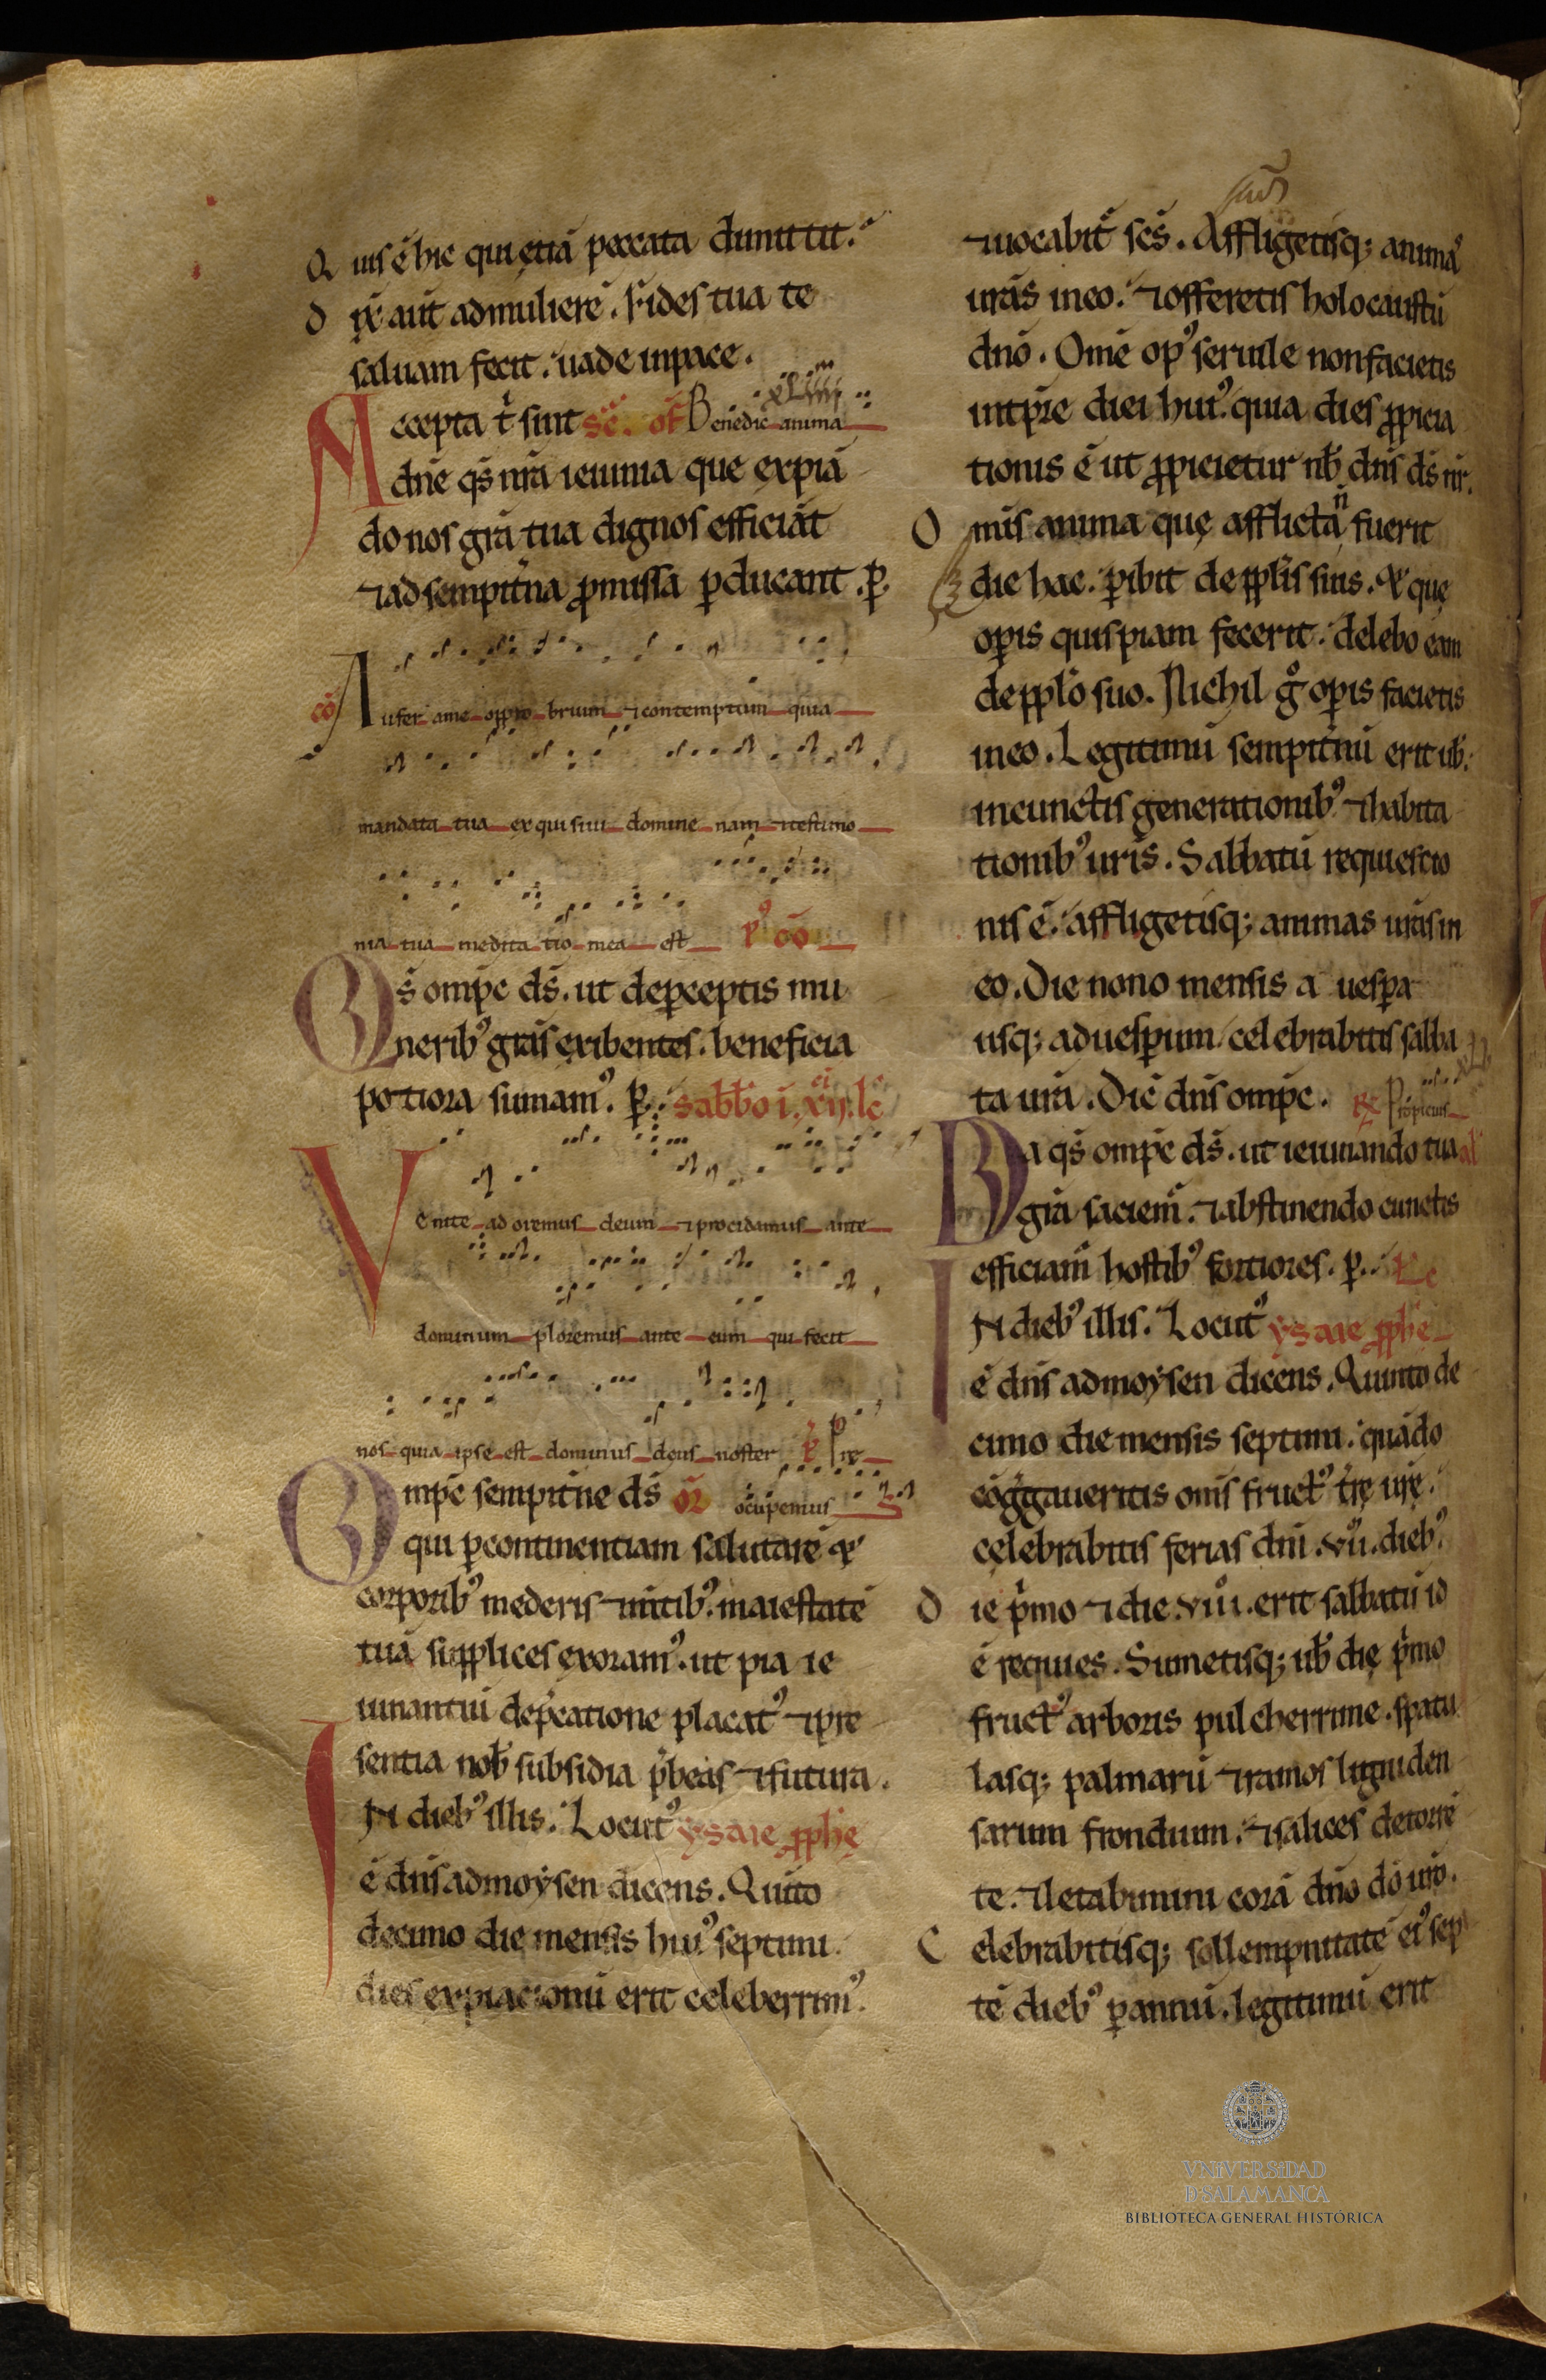 Quis ē hic qui etiā peccata dimittit.
Dix̄ aūt ad mulierē. Fides tua te
saluam fecit. uade in pace.
Accepta t̄ sint sēc. of̄ Benedic anima xLiiii
dn̄e q̄s nr̄a ieiunia que expiā
do nos gr̄a tua dignos efficiāt
⁊ ad sempit̄na ꝓmissa ꝑducant. ꝑ.
cō Aufer a me opprobrium ⁊ contemptum quia
mandata tua exquisiui domine nam ⁊ testimo
nia tua meditatio mea est p⁹ cō
Q̄s om̄pc d̄s. ut de ꝑceptis mu
nerib⁹ gr̄as exibentes. beneficia
potiora sumam⁹. ꝑ. sabb̄o i. xij. lc̄
Venite adoremus deum ⁊ procidamus ante
dominum ploremus ante eum qui fecit
nos quia ipse est dominus deus noster p̄ Pre
Om̄pc sempit̄ne d̄s or̄ ocupemus
qui ꝑ continentiam salutarē ⁊
corporib⁹ mederis ⁊ mētib⁹. maiestatē
tuā supplices exoram⁹. ut pia ie
iunantiū dep̄catione placat⁹ ⁊ pre
sentia nob̄ subsidia p̄beas ⁊ futura.
IN dieb⁹ illis. Locut⁹ ysaie ꝓph̄e
ē dn̄s ad moẏsen dicens. Quīto
decimo die mensis hui⁹ septimi
dies expiacionū erit celeberrim⁹.
⁊ uocabit̄ sc̄s. Affligetisq; animas
ur̄as in eo. ⁊ offeretis holocaustū
dn̄o. Om̄e op⁹ seruile non facietis
in tp̄re diei hui⁹. quia dies ꝓpicia
tionis ē ut ꝓpicietur ub̄ dn̄s d̄s ur̄.
Om̄is anima que afflicta n̄ fuerit
die hac. ꝑibit de ppl̄is suis. ⁊ que
oꝑis quispiam fecerit. delebo eam
de ppl̄o suo. Nichil g̊ oꝑis facietis
in eo. Legitimū sempit̄nū erit ub̄.
in cunctis generationib⁹ ⁊ habita
tionib⁹ ur̄is. Sabbatū requiecio
nis ē. affligetisq; animas ur̄as in
eo. Die nono mensis a uesꝑa
usq; ad uesꝑum celebrabitis sabba
ta ur̄a. Dic̄ dn̄s om̄pc. ℟ Propicius
Da q̄s om̄pc d̄s. ut ieiunando tua
gr̄a saciem̄. ⁊ abstinendo cunctis
efficiam̄ hostib⁹ fortiores. ꝑ. Lc
IN dieb⁹ illis. Locut⁹ ysaie ꝓph̄e
ē dn̄s ad moẏsen dicens. Quinto de
cimo die mensis septimi. quādo
cōgr̄gaueritis om̄s fruct⁹ t̄re ur̄e.
celebrabitis ferias dn̄i .vii. dieb⁹.
Die p̄mo ⁊ die .viii. erit sabbatū id
ē requies. Sumetisq; ub̄ die p̄mo
fruct⁹ arboris pulcherrime. spatu
lasq; palmarū ⁊ ramos ligni den
sarum frondium. ⁊ salices de torrē
te. ⁊ letabimini corā dn̄o dō ur̄o.
Celebrabitisq; sollempnitatē ei⁹ sep
tē dieb⁹ ꝑ annū. legitimū erit
VNiVERSiDAD
D SALAMANCA
BIBLIOTECA GENERAL HISTÓRICA